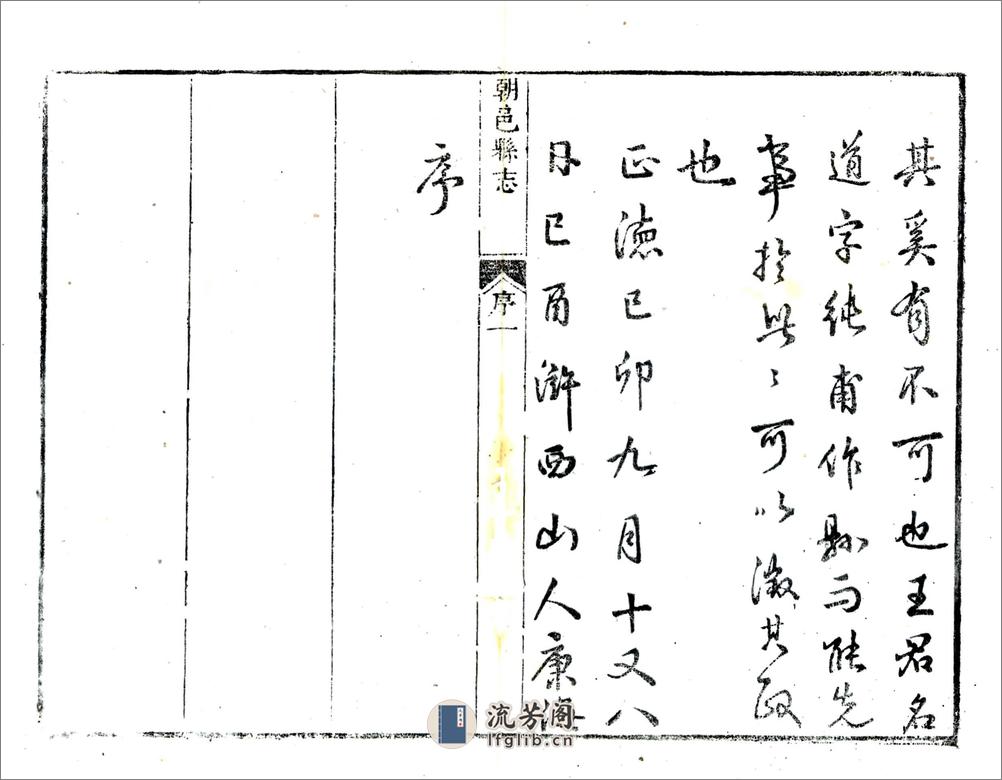 其奚有不可也王君名
道字純甫作縣而能先
事於此〻可以徵其政
也
正德己卯九月十又八
日己酉滸西山人康海
序
朝邑縣志
序
一
流芳阁
lfglib.cn